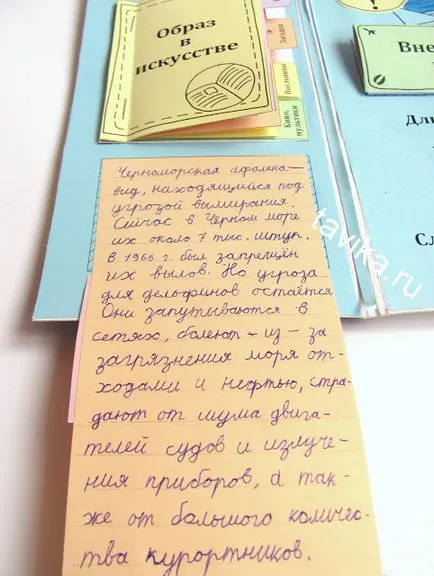 Образ
в
искусстве
Загадки
Пословицы
Кино,
мультики
!
Вне
Дли
Сл
tavika.ru
Черноморская афалина —
вид, находящийся под
угрозой вымирания.
Сейчас в Черном море
их около 7 тыс. штук.
В 1966 г. был запрещён
их вылов. Но угроза
для дельфинов остаётся
Они запутываются в
сетях, болеют - из - за
загрязнения моря от-
ходами и нефтью, стра-
дают от шума двига-
телей судов и излуче-
ния приборов, а так-
же от большого количес-
тва курортников.